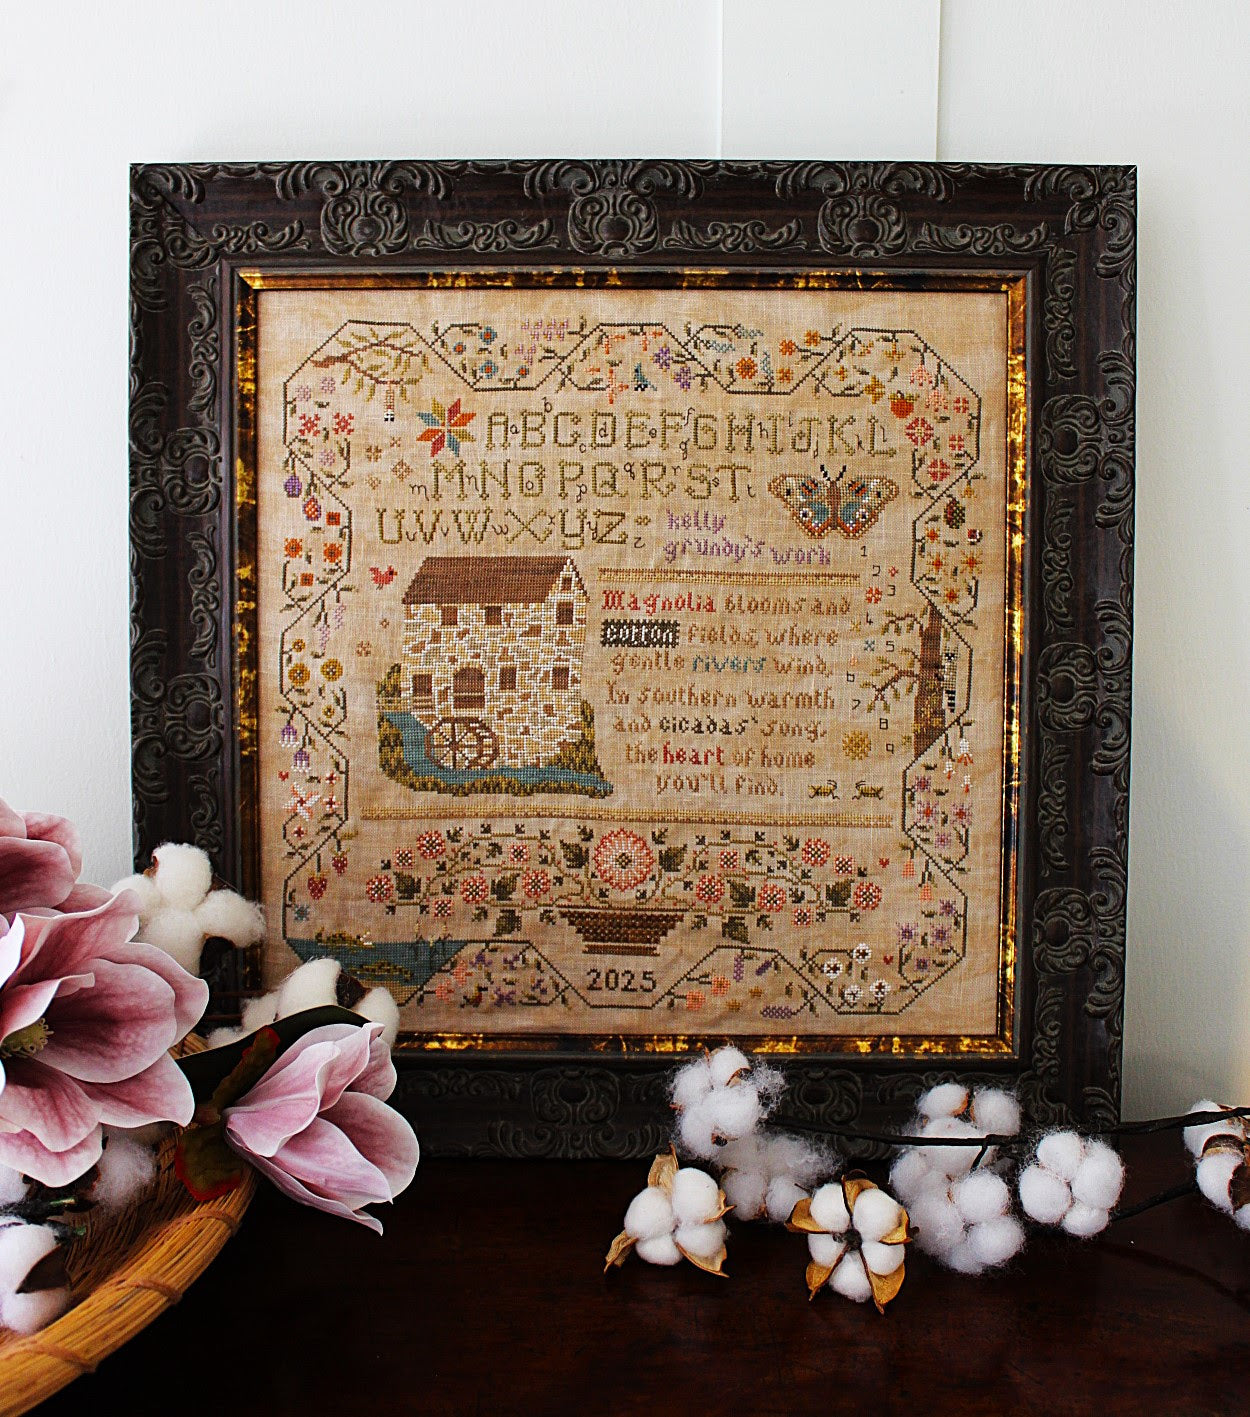 A a B b C c D d E e F f G g H h I i J j K k L l
M m N n O o P p Q q R r S s T t
U u V v W w X x Y y Z z
kelly
grundy's work
1
2
3
4
5
6
7
8
9
Magnolia blooms and
cotton fields, where
gentle rivers wind,
In southern warmth
and cicadas' song,
the heart of home
you'll find.
2025